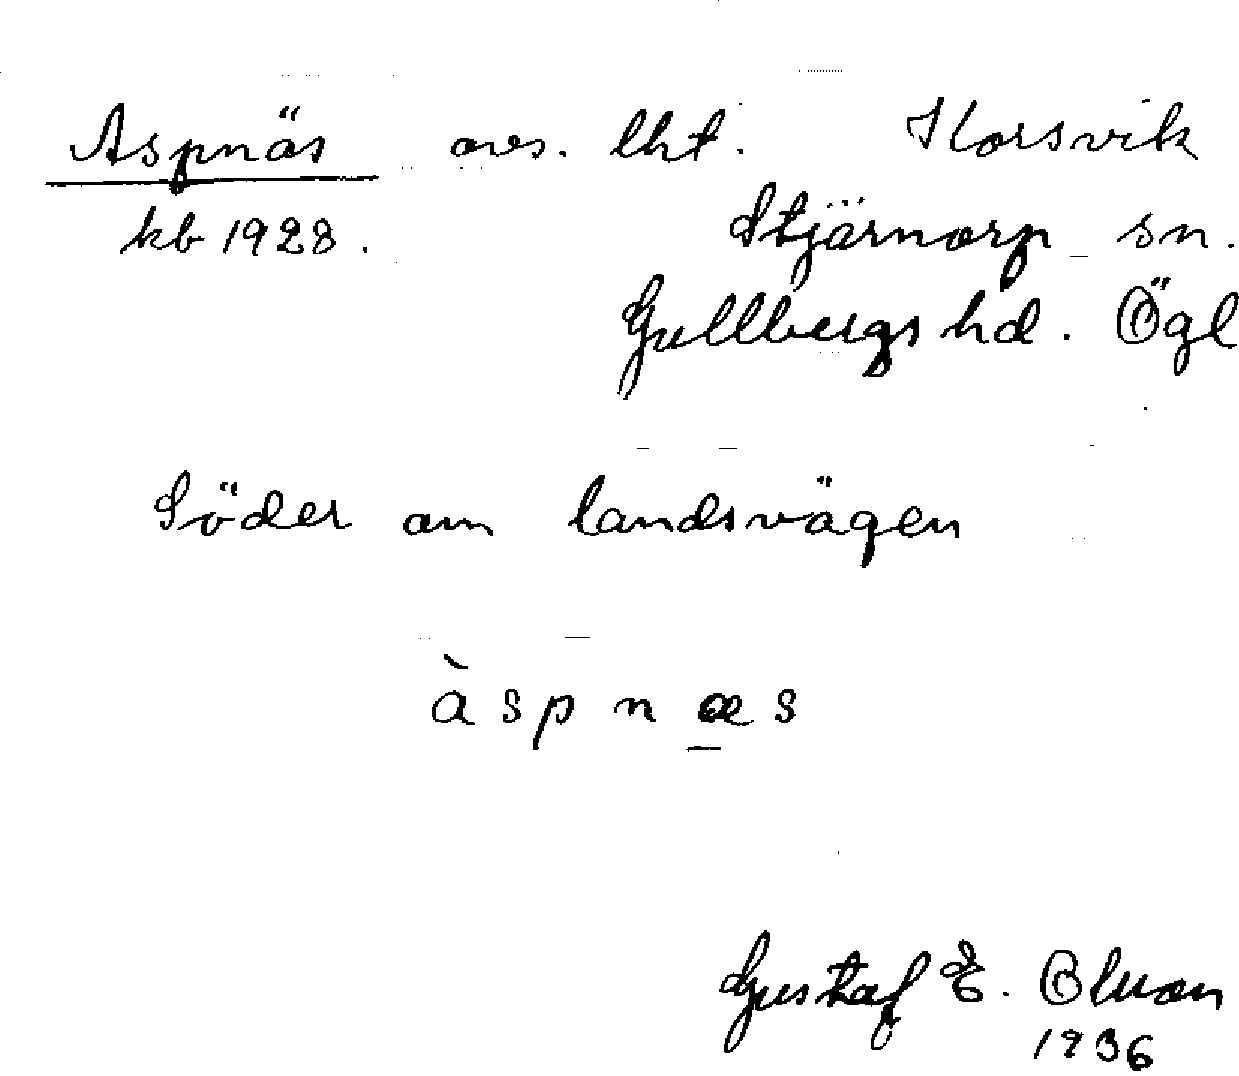 Aspnäs avs. lht. Korsvik
kb 1928. Stjärnorp sn.
Gullbergs hd. Ögl
Söder om landsvägen
àspnæs
Gustaf E. Olson
1936